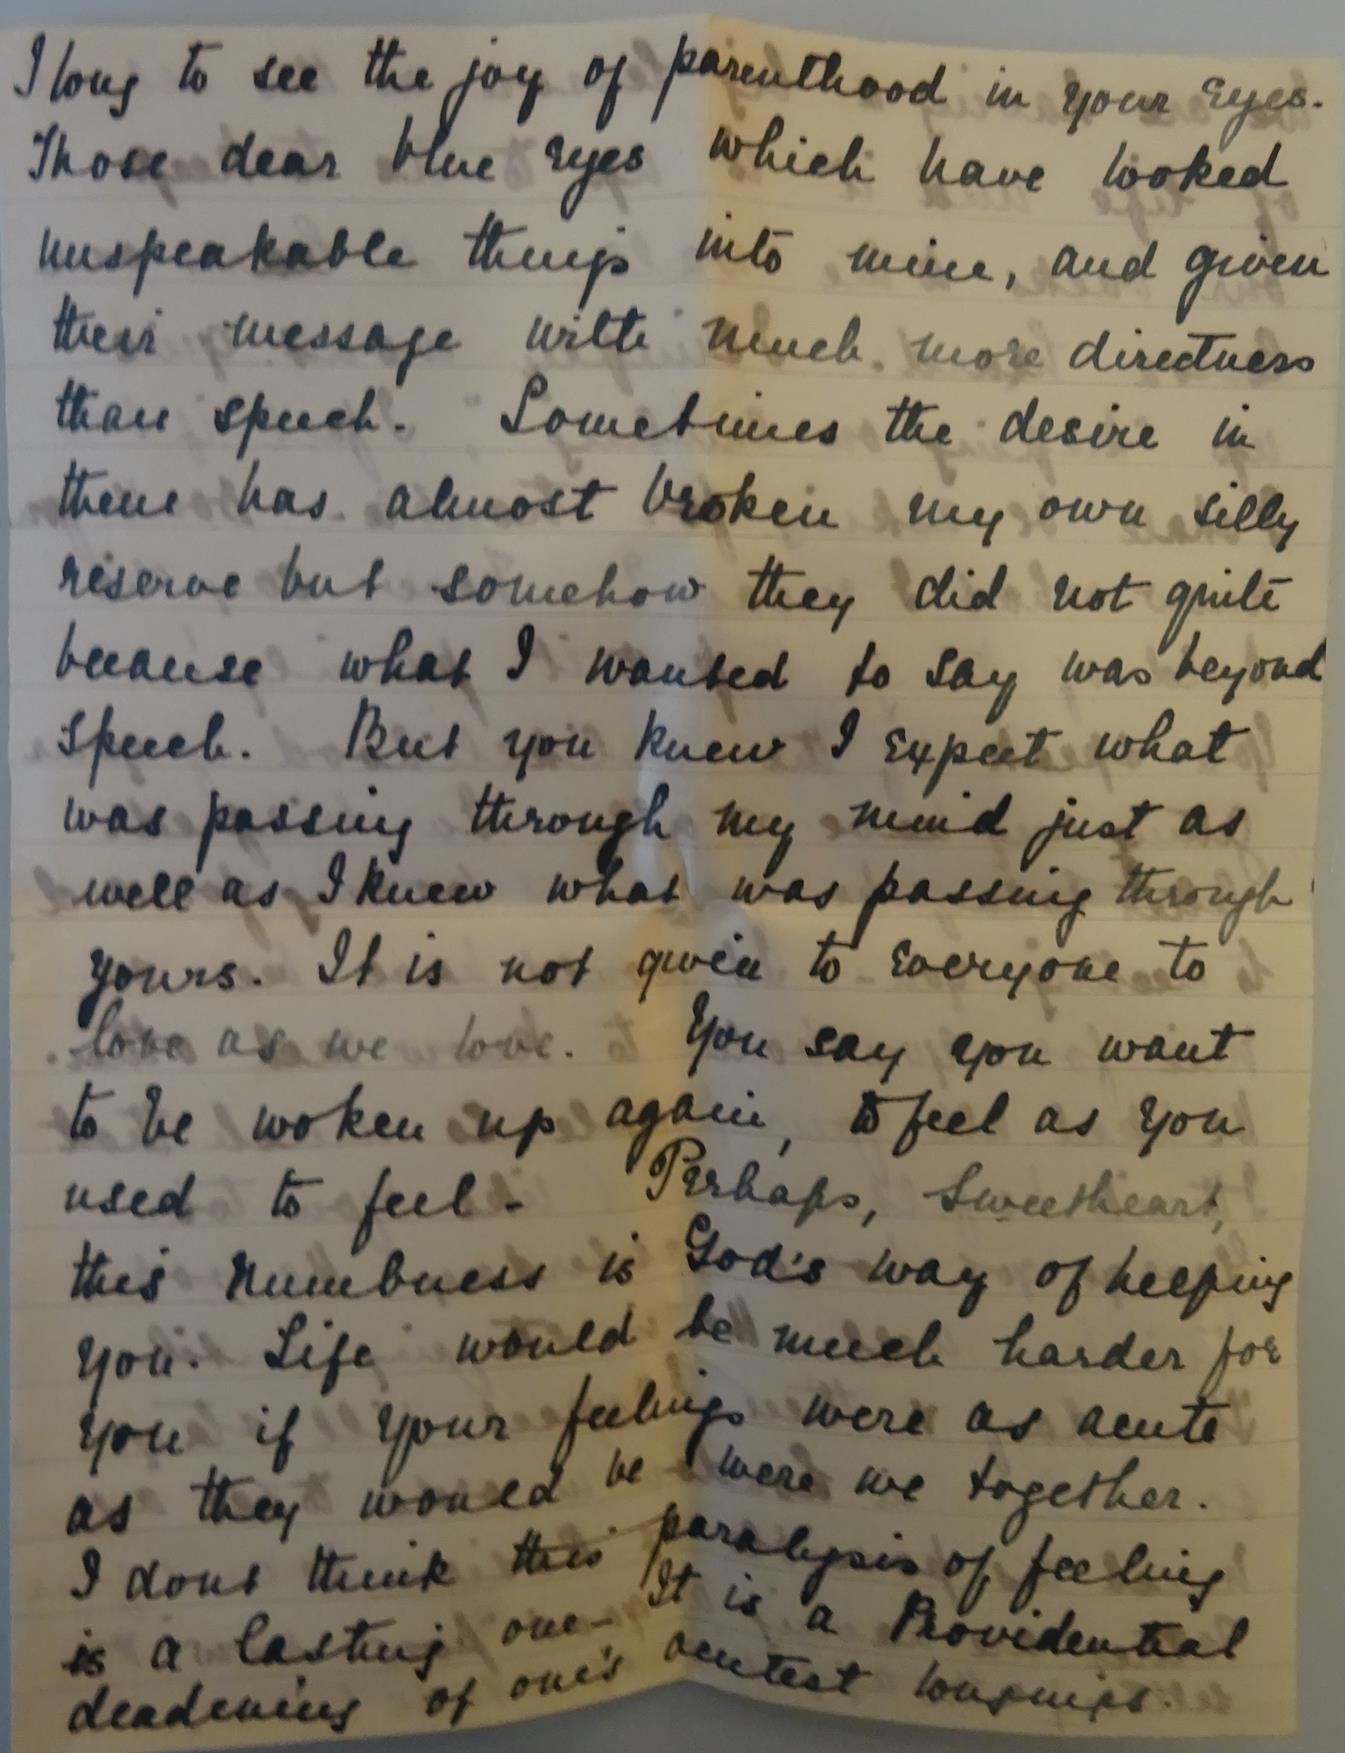 I long to see the joy of parenthood in your eyes.
Those dear blue eyes which have looked
unspeakable things into mine, and given
their message with much more directness
than speech. Sometimes the desire in
them has almost broken my own silly
reserve but somehow they did not quite
because what I wanted to say was beyond
speech. But you knew I expect what
was passing through my mind just as
well as I knew what was passing through
yours. It is not given to everyone to
love as we love. You say you want
to be woken up again, to feel as you
used to feel - Perhaps, Sweetheart,
this numbness is God's way of helping
you. Life would be much harder for
you if your feelings were as acute
as they would be were we together.
I dont think this paralysis of feeling
is a lasting one - It is a Providential
deadening of one's acutest longings.